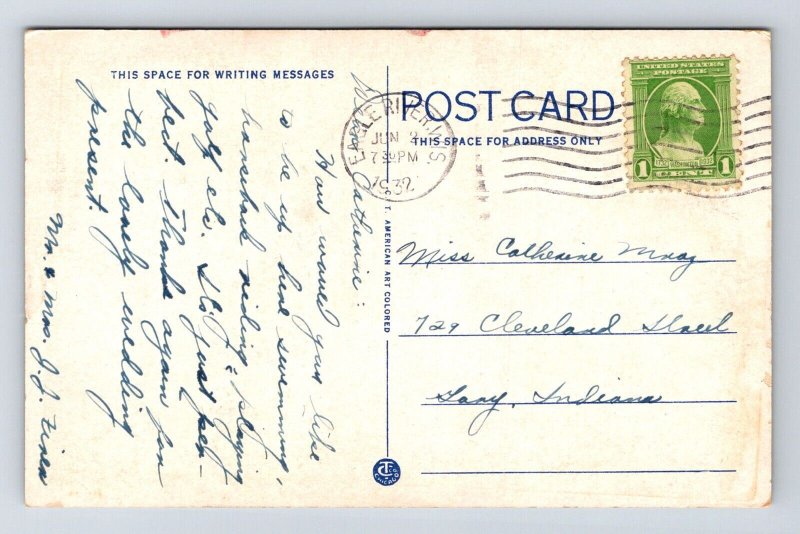 THIS SPACE FOR WRITING MESSAGES
Dear Catherine:
How would you like
to be up here swimming,
horseback riding, playing
golf etc. It's just per-
fect. Thanks again for
the lovely wedding
present.
Mr. & Mrs. J. J.
T. AMERICAN ART COLORED
CT CO
CHICAGO
POST CARD
THIS SPACE FOR ADDRESS ONLY
EAGLE RIVER, WIS.
JUN 2
7 30 PM
1932
UNITED STATES
POSTAGE
1 1
CENT
Miss Catherine Mraz
729 Cleveland Street
Gary, Indiana